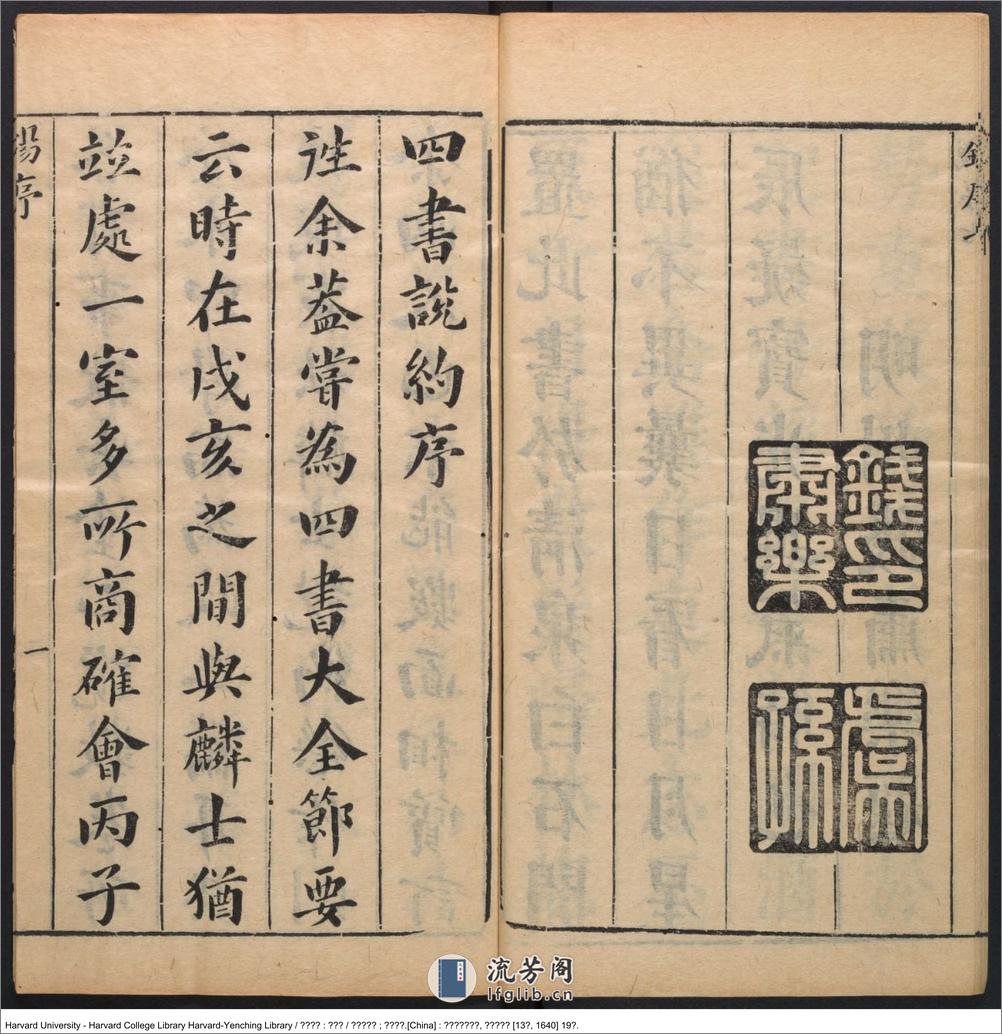 錢序
錢印
肅樂
孫
四書說約序
往余葢嘗為四書大全節要
云時在戌亥之間與麟士猶
竝處一室多所商確會丙子
楊序 一
流芳阁
lfglib.cn
Harvard University - Harvard College Library Harvard-Yenching Library / ???? : ??? / ????? ; ????.[China] : ???????, ????? [13?, 1640] 19?.